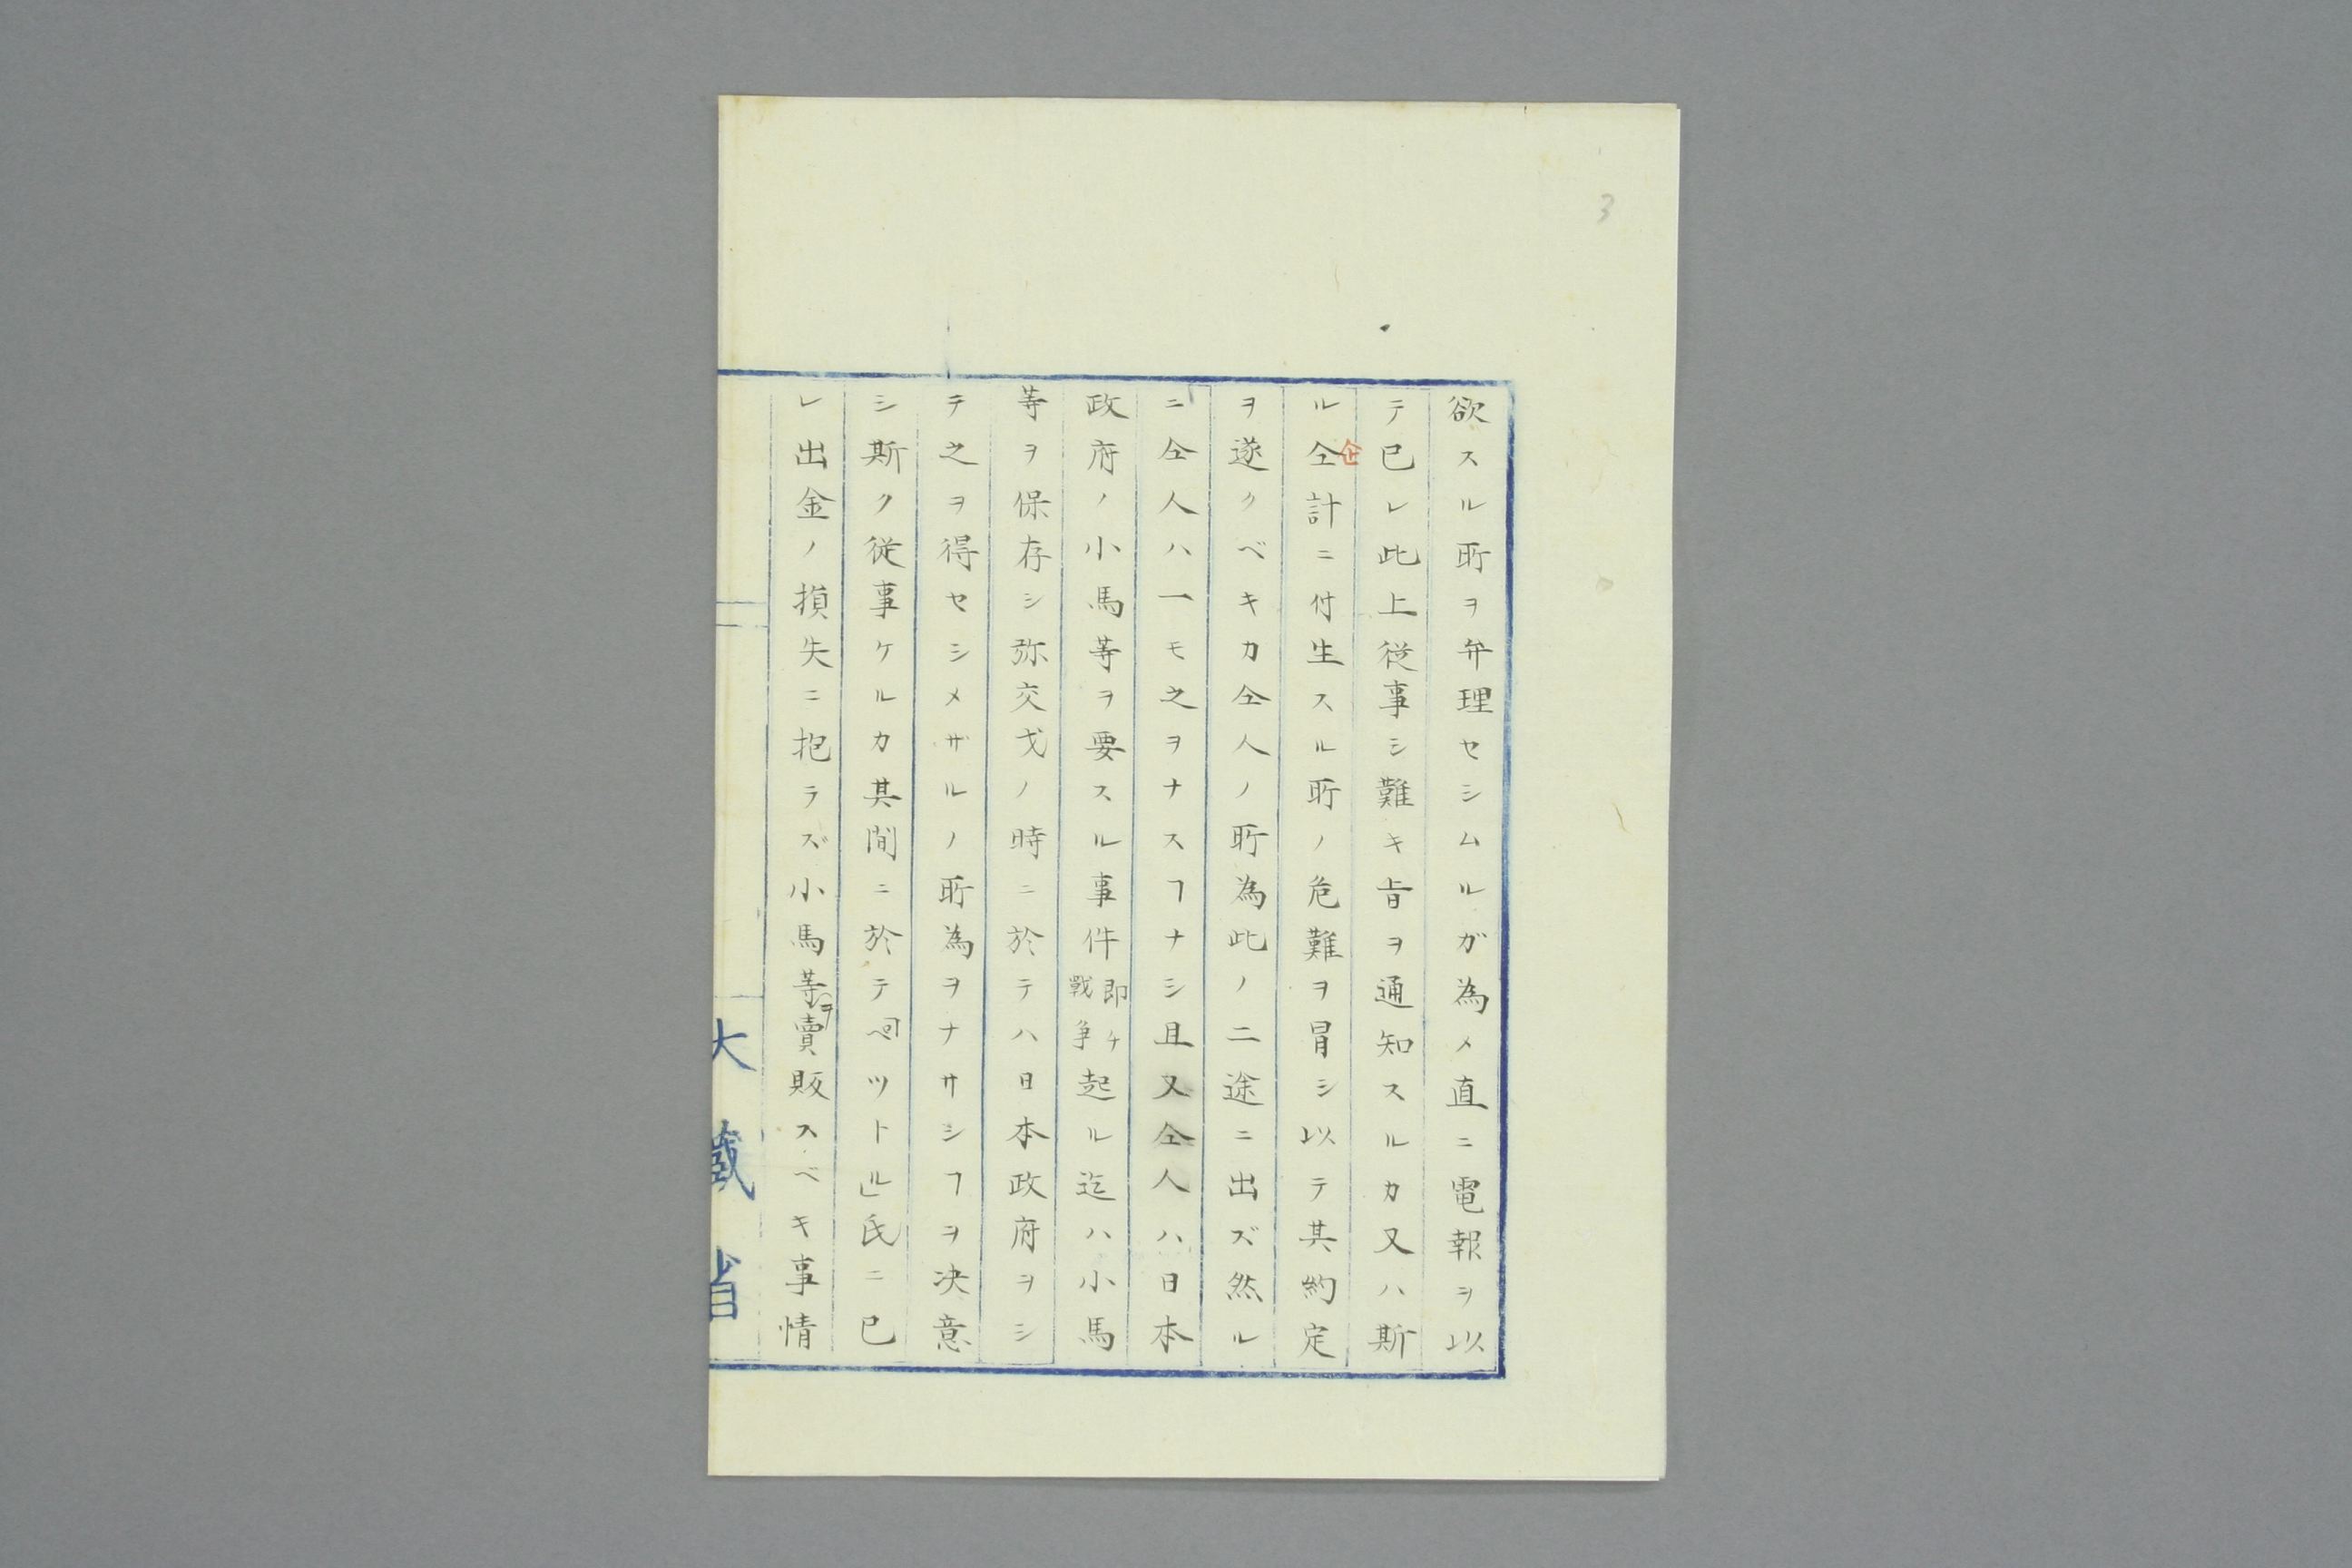 3
欲スル所ヲ弁理セシムルガ為メ直ニ電報ヲ以
テ已レ此上従事シ難キ旨ヲ通知スルカ又ハ斯
ル仝計ニ付生スル所ノ危難ヲ冒シ以テ其約定
企
ヲ遂クベキカ仝人ノ所為此ノ二途ニ出ズ然ル
ニ仝人ハ一モ之ヲナスヿナシ且又仝人ハ日本
政府ノ小馬等ヲ要スル事件即チ戰争起ル迄ハ小馬
等ヲ保存シ弥交戈ノ時ニ於テハ日本政府ヲシ
テ之ヲ得セシメザルノ所為ヲナサシヿヲ决意
シ斯ク従事ケルカ其間ニ於テ「ペツトル」氏ニ已
レ出金ノ損失ニ抱ラズ小馬等ヲ賣販スベキ事情
大藏省